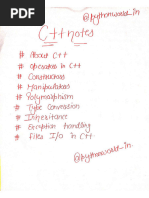 @pythonworld_in
C++ notes
# About C++
# operators in C++
# Constructors
# Manipulators
# Polymorphism
# Type Conversion
# Inheritance
# Exception handling
# Files I/O in C++
@pythonworld_in